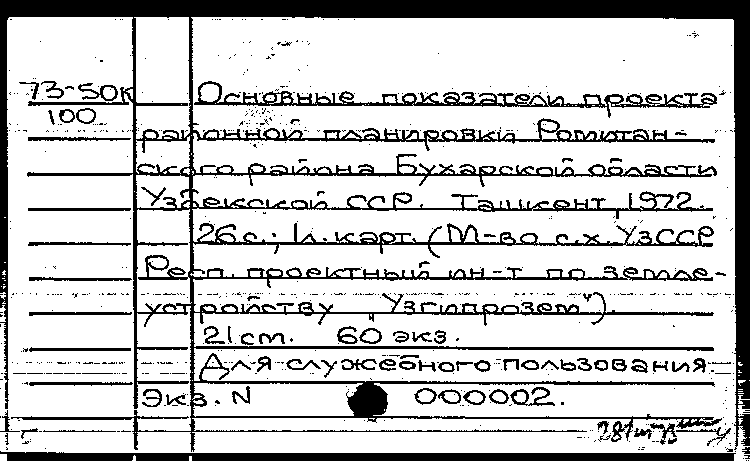 73-50к
100
Основные показатели проекта
районной планировки Ромитан-
ского района Бухарской области
Узбекской ССР. Ташкент, 1972.
26с.; 1л. карт. (М-во с.х. УзССР
Респ. проектный ин-т по земле-
устройству "Узгипрозем").
21 cm. 60 экз.
Для служебного пользования.
Экз. N 000002.